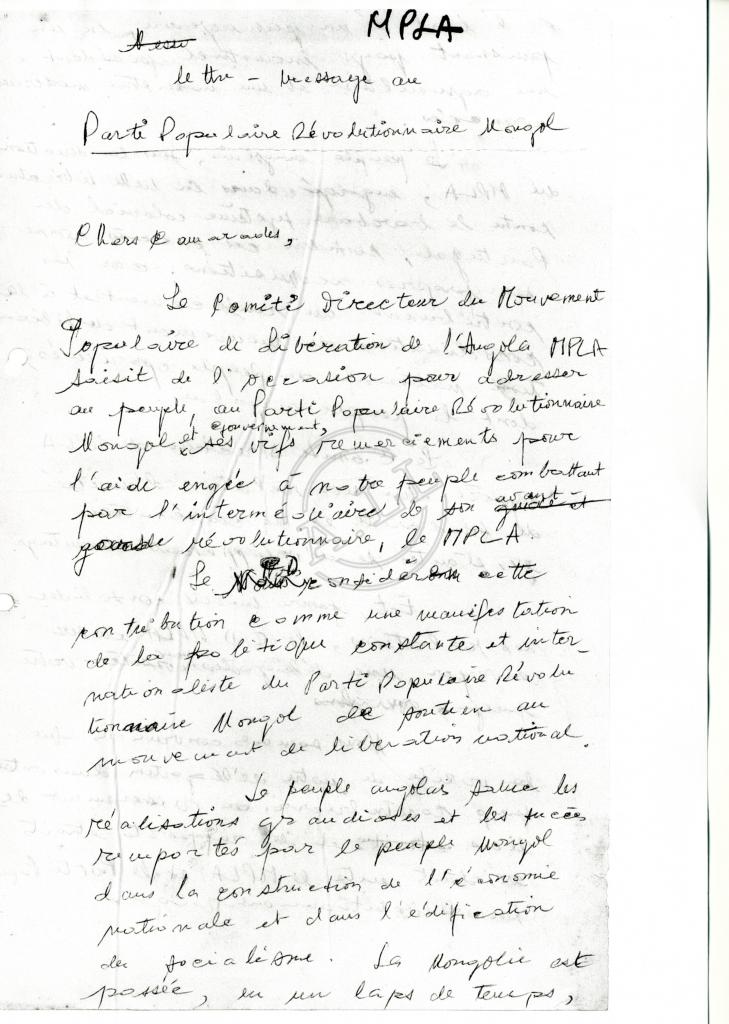 MPLA
lettre - message au
Parti Populaire Révolutionnaire Mongol
Chers Camarades,
Le Comité Directeur du Mouvement
Populaire de Libération de l'Angola MPLA
saisit de l'occasion pour adresser
au peuple, au Parti Populaire Révolutionnaire
Mongol et gouvernement, ses vifs remerciements pour
l'aide à notre peuple combattant
par l'intermédiaire de son avant-
garde révolutionnaire, le MPLA
Le cette
contribution comme une manifestation
de la politique constante et inter-
nationaliste du Parti Populaire Révolu
tionnaire Mongol de soutien au
mouvement de libération national.
Le peuple angolais salue les
réalisations grandioses et les succès
remportés par le peuple Mongol
dans la construction de l'économie
nationale et dans l'édification
du socialisme. La Mongolie est
passée, en un laps de temps,